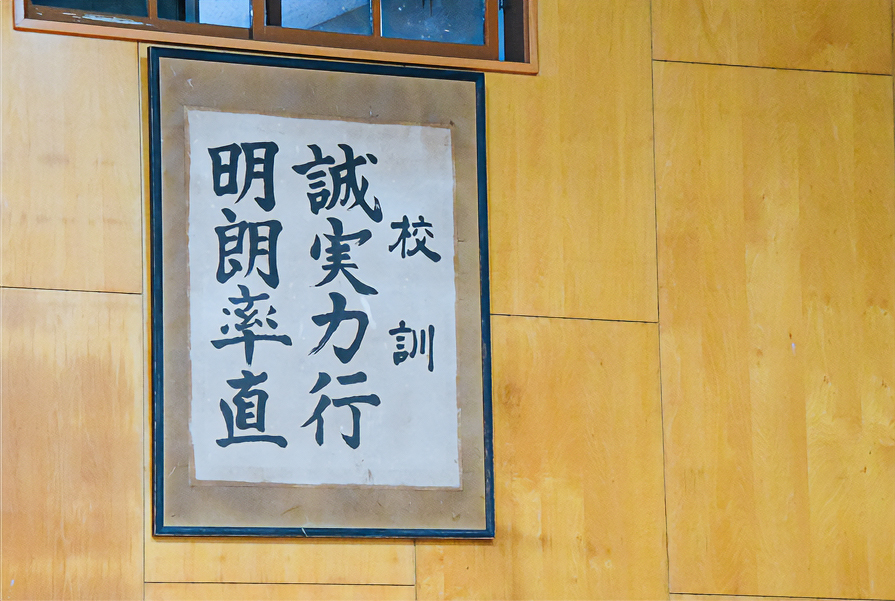 校訓
誠実力行
明朗率直